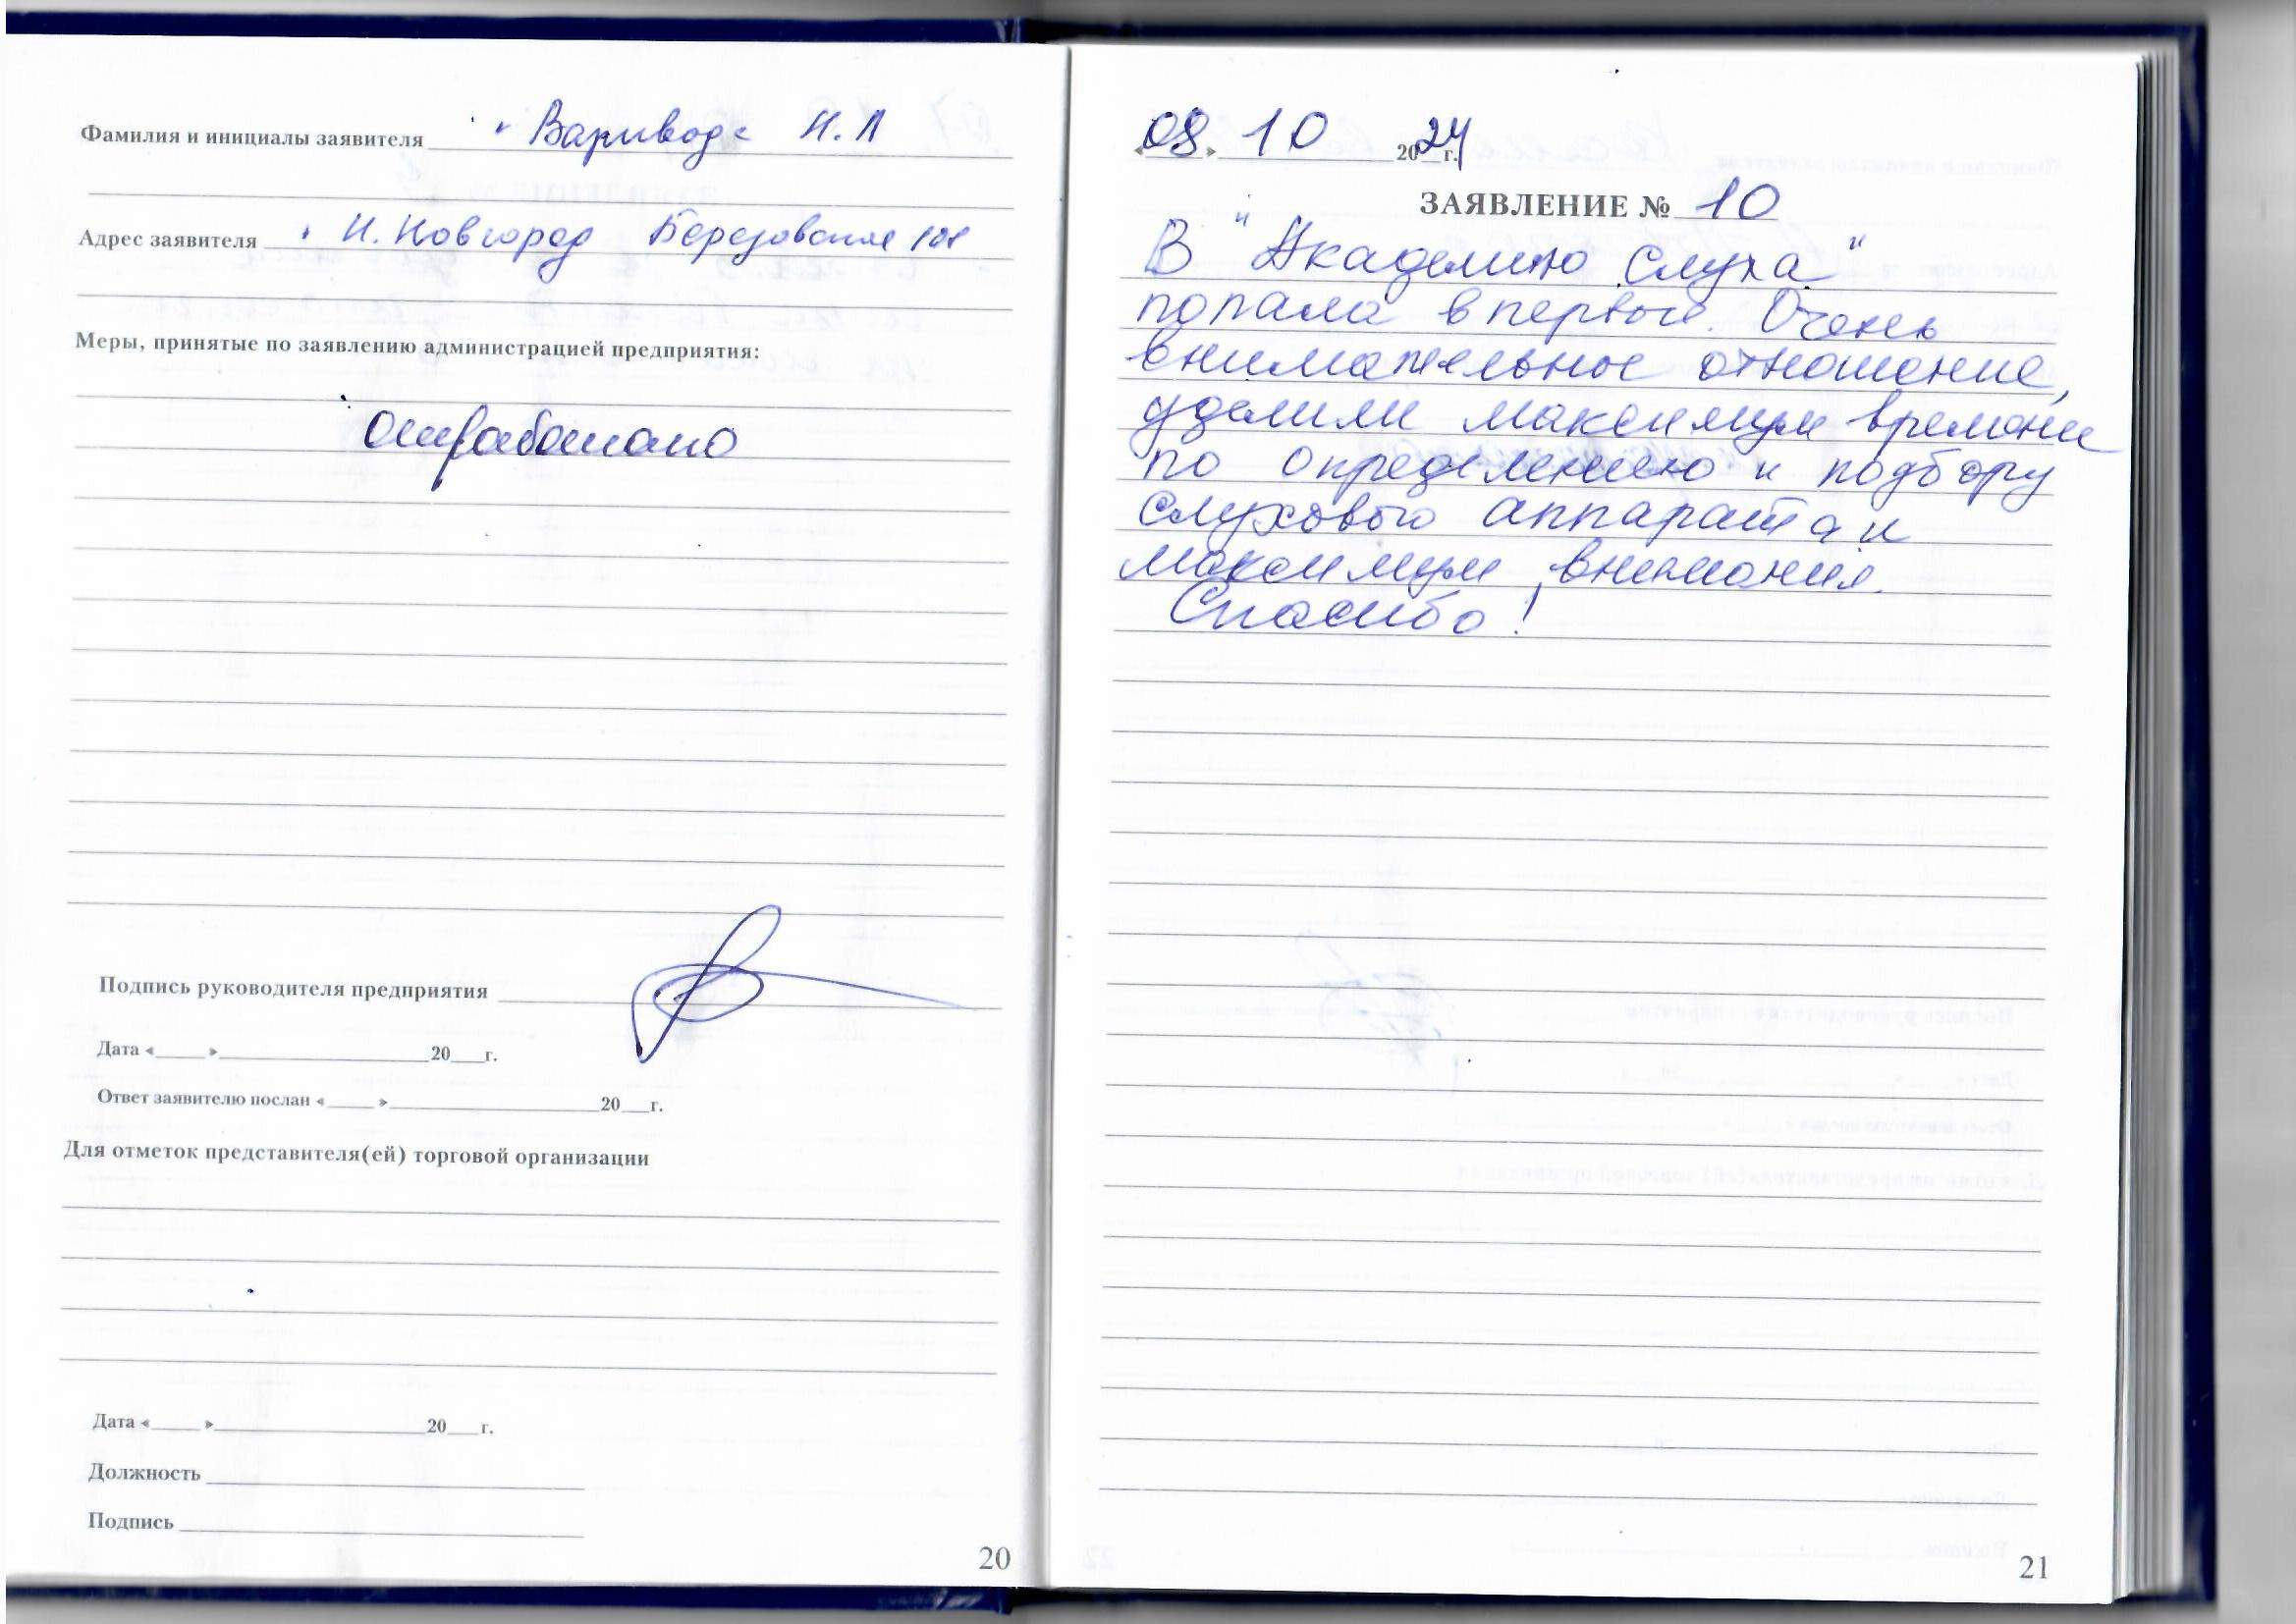 Фамилия и инициалы заявителя Варивода Н.Л
Адрес заявителя Н. Новгород Березовская 101
Меры, принятые по заявлению администрацией предприятия:
отработано
Подпись руководителя предприятия
Дата «____»____20__г.
Ответ заявителю послан «____»____20__г.
Для отметок представителя(ей) торговой организации
Дата «____»____20__г.
Должность
Подпись
20
«08» 10 2024 г.
ЗАЯВЛЕНИЕ № 10
В "Академию Слуха"
попала впервые. Очень
внимательное отношение,
уделили максимум времени
по определению и подбору
слухового аппарата и
максимум внимания.
Спасибо!
21